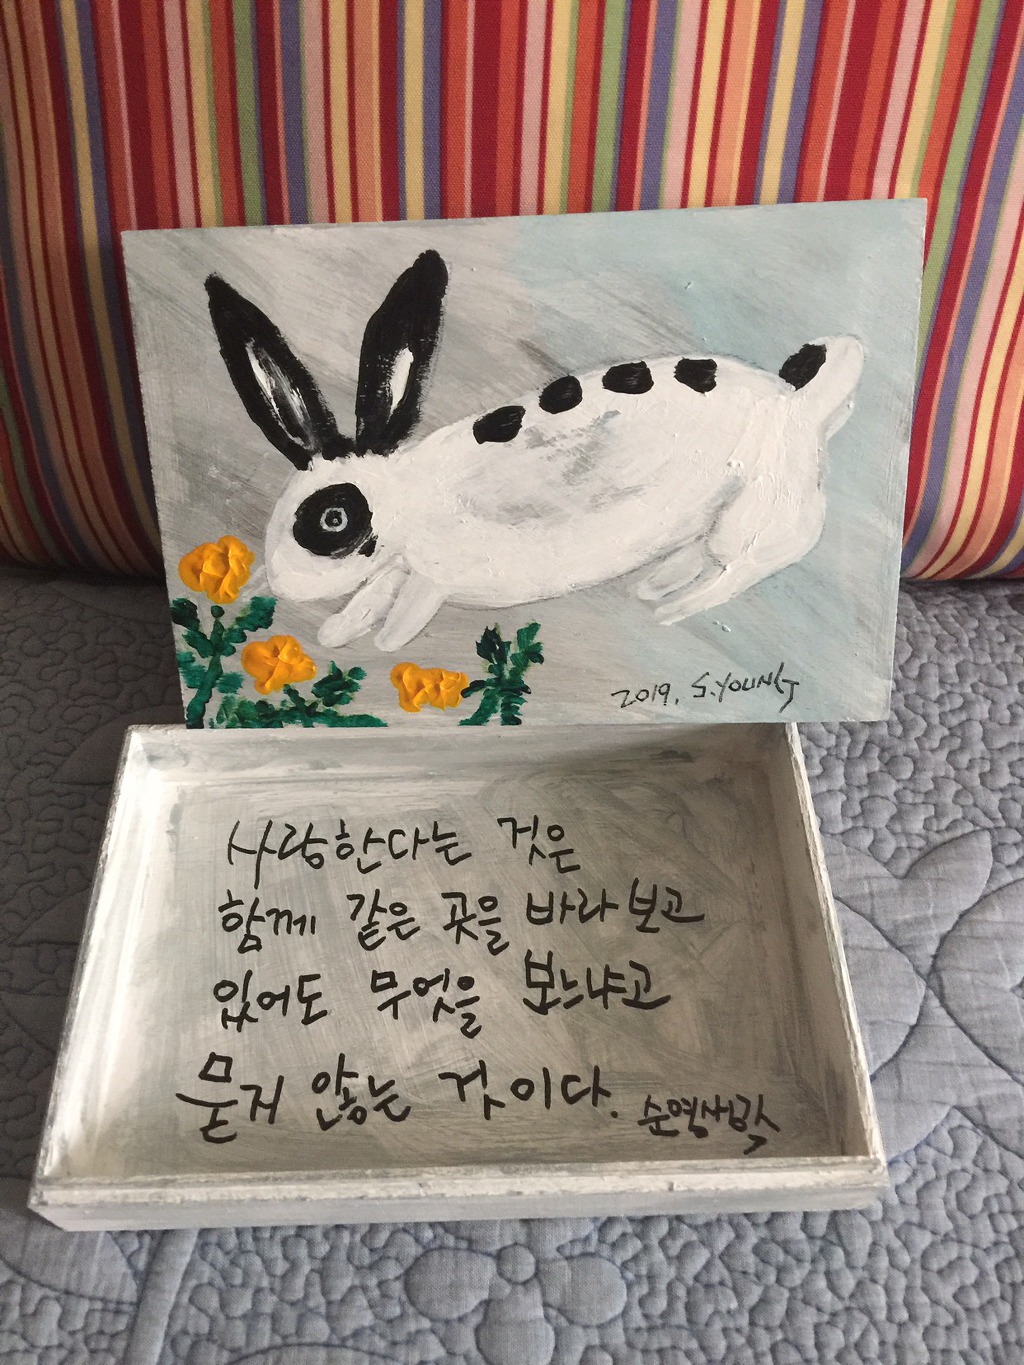 2019. S.YOUNG
사랑한다는 것은
함께 같은 곳을 바라보고
있어도 무엇을 보느냐고
묻지 않는 것이다.
순영생각